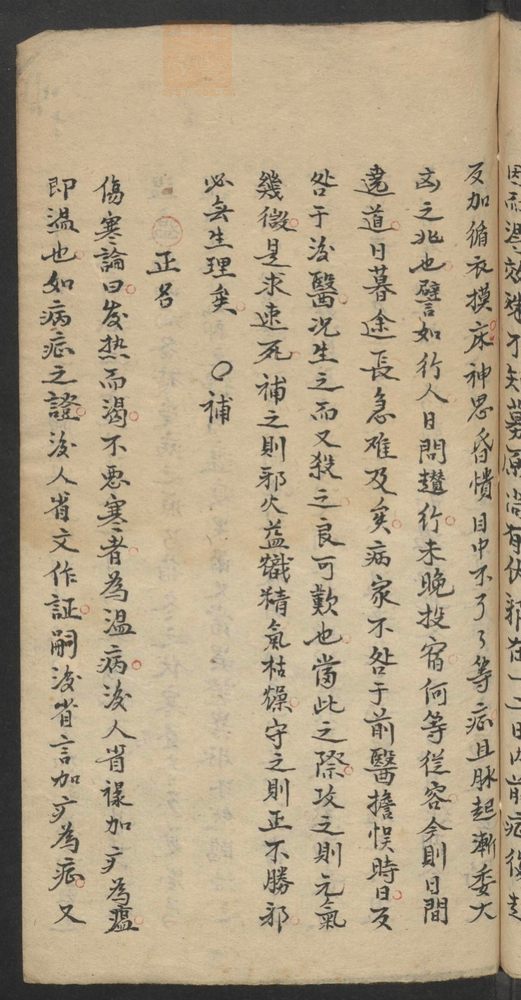 因而獲效殊不知募原尚有伏邪在一二日內前症復起
反加循衣摸床神思昏憒目中不了了等症且脉起漸委大
凶之兆也譬如行人日間趲行未晚投宿何等從容今則日間
遶道日暮途長急难及矣病家不咎于前醫擔悮時日反
咎于後醫况生之而又殺之良可歎也當此之際攻之則元氣
幾微是求速死補之則邪火益熾精氣枯燥守之則正不勝邪
必無生理矣 〇補
正名
傷寒論曰发热而渴不惡寒者為温病後人省氵加疒為瘟
即温也如病症之證後人省文作証嗣後省言加疒為症又